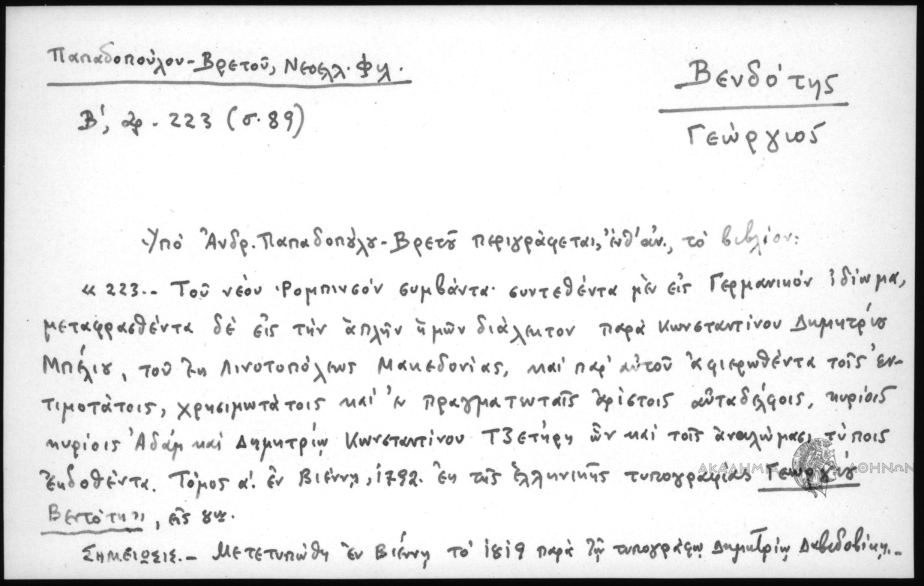 Παπαδοπούλου-Βρετοῦ, Νεοελλ. Φιλ.
Βενδότης
Β', ἀρ. 223 (σ. 89)
Γεώργιος
Ὑπὸ Ἀνδρ. Παπαδοπούλου-Βρετοῦ περιγράφεται, ἔνθ' ἀν., τὸ βιβλίον:
« 223.- Τοῦ νέου Ῥομπινσόν συμβάντα· συντεθέντα μὲν εἰς Γερμανικόν ἰδίωμα,
μεταφρασθέντα δὲ εἰς τὴν ἁπλῆν ἡμῶν διάλεκτον παρὰ Κωνσταντίνου Δημητρίου
Μπέλιου, τοῦ ἐκ Λινοτοπόλεως Μακεδονίας, καὶ παρ' αὐτοῦ ἀφιερωθέντα τοῖς ἐν-
τιμοτάτοις, χρησιμωτάτοις καὶ ἐν πραγματευταῖς ἀρίστοις αὐταδέλφοις, κυρίοις
κυρίοις Ἀδάμ καὶ Δημητρίῳ Κωνσταντίνου Τζετήρη ὧν καὶ τοῖς ἀναλώμασι τύποις
ἐκδοθέντα. Τόμος α'. ἐν Βιέννῃ, 1792. ἐκ τῆς ἑλληνικῆς τυπογραφίας Γεωργίου
Βεντότη», εἰς
ΣΗΜΕΙΩΣΙΣ.- Μετετυπώθη ἐν Βιέννῃ τὸ 1819 παρὰ τῷ τυπογράφῳ Δημητρίῳ Δαβιδοβίκῃ.-
ΑΚΑΔΗΜΙΑ ΑΘΗΝΩΝ